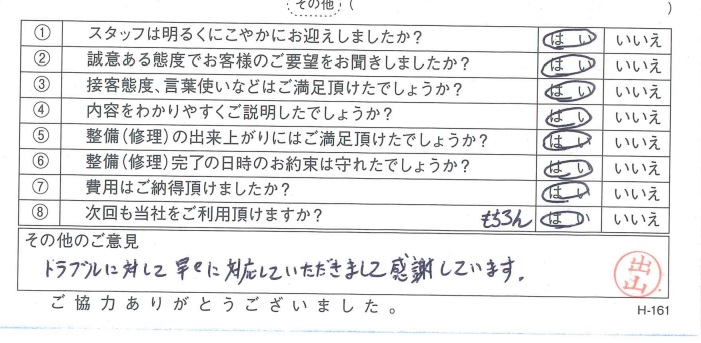 その他 (　)
① スタッフは明るくにこやかにお迎えしましたか？ はい いいえ
② 誠意ある態度でお客様のご要望をお聞きしましたか？ はい いいえ
③ 接客態度、言葉使いなどはご満足頂けたでしょうか？ はい いいえ
④ 内容をわかりやすくご説明したでしょうか？ はい いいえ
⑤ 整備(修理)の出来上がりにはご満足頂けたでしょうか？ はい いいえ
⑥ 整備(修理)完了の日時のお約束は守れたでしょうか？ はい いいえ
⑦ 費用はご納得頂けましたか？ はい いいえ
⑧ 次回も当社をご利用頂けますか？ もちろん はい いいえ
その他のご意見
トラブルに対して早々に対応していただきまして感謝しています。
出山
ご協力ありがとうございました。
H-161